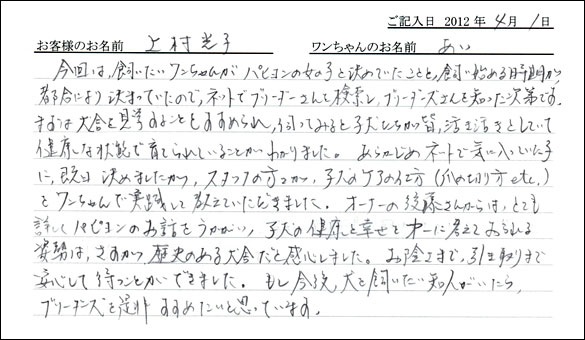 ご記入日 2012年4月1日
お客様のお名前 上村光子 ワンちゃんのお名前 あい
今回は、飼いたいワンちゃんがパピヨンの女の子と決めていたことと、飼い始める時期が
都合により決まっていたので、ネットでブリーダーさんを検索し、ブリーダーズさんを知った次第です。
まずは犬舎を見学することをすすめられ、伺ってみると子犬たちが皆、活き活きとしていて
健康な状態で育てられていることがわかりました。 あらかじめネットで気に入っていた子
に、既に決めましたが、スタッフの方々が、子犬のケアの仕方(爪の切り方etc.)
をワンちゃんで実践して教えていただきました。オーナーの後藤さんからは、とても
詳しくパピヨンのお話をうかがい、子犬の健康と幸せを第一に考えてみられる
姿勢は、さすが、歴史のある犬舎だと感心しました。 お陰さまで、引き取りまで
安心して待つことができました。 もし今後、犬を飼いたい知人がいたら、
ブリーダーズを是非すすめたいと思っています。